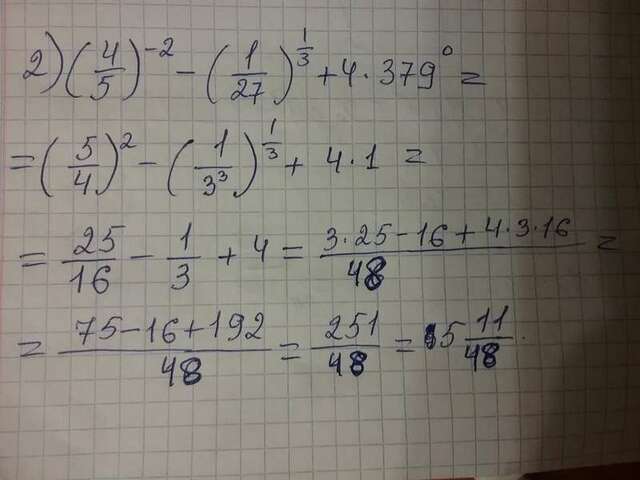 2) (4/5)^-2 - (1/27)^1/3 + 4 · 379^0 =
= (5/4)^2 - (1/3^3)^1/3 + 4 · 1 =
= 25/16 - 1/3 + 4 = (3·25-16+4·3·16)/48 =
= (75-16+192)/48 = 251/48 = 5 11/48.